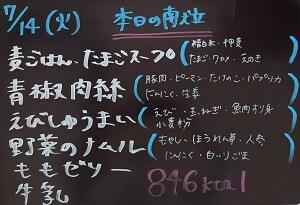 7/14(火) 本日の献立
麦ごはん、たまごスープ
精白米・押麦
たまご・ワカメ・えのき
青椒肉絲
豚肉・ピーマン・たけのこ・パプリカ
にんにく・生姜
えびしゅうまい
えび・玉ねぎ・魚肉すり身
小麦粉
野菜のナムル
もやし・ほうれん草・人参
にんにく・白いりごま
ももゼリー
牛乳
846kcal